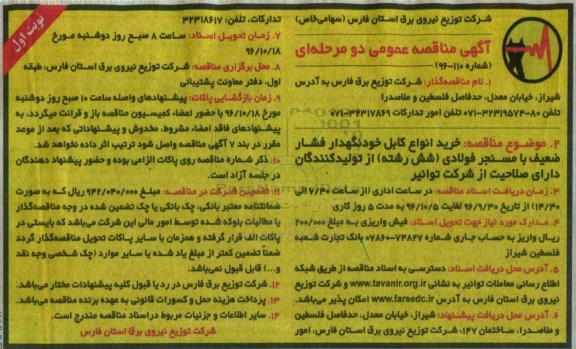 شرکت توزیع نیروی برق استان فارس (سهامی‌خاص)
آگهی مناقصه عمومی دو مرحله‌ای
(شماره ۱۱۰-۹۶)
۱. نام مناقصه‌گذار: شرکت توزیع نیروی برق استان فارس به آدرس
شیراز، خیابان معدل، حدفاصل فلسطین و ملاصدرا
تلفن ۸۰-۳۲۳۱۹۵۷۴-۰۷۱ تلفن امور تدارکات ۳۲۳۱۷۸۶۹-۰۷۱
۲. موضوع مناقصه: خرید انواع کابل خودنگهدار فشار
ضعیف با مسنجر فولادی (شش رشته) از تولیدکنندگان
دارای صلاحیت از شرکت توانیر
۳. زمان دریافت اسناد مناقصه: در ساعت اداری (از ساعت ۷/۳۰ الی
۱۴/۳۰) از تاریخ ۹۶/۹/۳۰ لغایت ۹۶/۱۰/۵ به مدت ۵ روز کاری
۴. مدارک مورد نیاز جهت تحویل اسناد: فیش واریزی به مبلغ ۲۰۰/۰۰۰
ریال واریز به حساب جاری شماره ۷۴۸۲۷-۰۷۸۶۰ بانک تجارت شعبه
فلسطین شیراز
۵. آدرس محل دریافت اسناد: دسترسی به اسناد مناقصه از طریق شبکه
اطلاع رسانی معاملات توانیر به نشانی www.tavanir.org.ir و شرکت توزیع
نیروی برق استان فارس به آدرس www.farsedc.ir امکان پذیر می‌باشد.
۶. آدرس محل دریافت پیشنهاد: شیراز، خیابان معدل، حدفاصل فلسطین
و ملاصدرا، ساختمان ۱۴۷، شرکت توزیع نیروی برق استان فارس، امور
نوبت اول
تدارکات، تلفن: ۳۲۳۱۸۶۱۷
۷. زمان تحویل اسناد: ساعت ۸ صبح روز دوشنبه مورخ
۹۶/۱۰/۱۸
۸. محل برگزاری مناقصه: شرکت توزیع نیروی برق استان فارس، طبقه
اول، دفتر معاونت پشتیبانی
۹. زمان بازگشایی پاکات: پیشنهادهای واصله ساعت ۱۰ صبح روز دوشنبه
مورخ ۹۶/۱۰/۱۸ با حضور اعضاء کمیسیون مناقصه باز و قرائت میگردد، به
پیشنهادهای فاقد امضاء، مشروط، مخدوش و پیشنهاداتی که بعد از موعد
مقرر در بند ۷ آگهی مناقصه واصل شود ترتیب اثر داده نخواهد شد.
۱۰. ذکر شماره مناقصه روی پاکات الزامی بوده و حضور پیشنهاد دهندگان
در جلسه آزاد است.
۱۱. تضمین شرکت در مناقصه: مبلغ ۹۴۲/۰۴۰/۰۰۰ ریال که به صورت
ضمانتنامه معتبر بانکی، چک بانکی یا چک تضمین شده در وجه مناقصه‌گذار
یا مطالبات بلوکه شده توسط امور مالی این شرکت می‌باشد که بایستی در
پاکات الف قرار گرفته و همزمان با سایر پاکات تحویل مناقصه‌گذار گردد
ضمناً تضمین کمتر از مبلغ یاد شده یا سایر موارد (چک شخصی وجه نقد
و...) قابل قبول نمی‌باشد.
۱۲. شرکت توزیع برق فارس در رد یا قبول کلیه پیشنهادات مختار می‌باشد.
۱۳. پرداخت هزینه حمل و کسورات قانونی به عهده برنده مناقصه می‌باشد.
۱۴. سایر اطلاعات و جزئیات مربوط در اسناد مناقصه مندرج است.
شرکت توزیع نیروی برق استان فارس